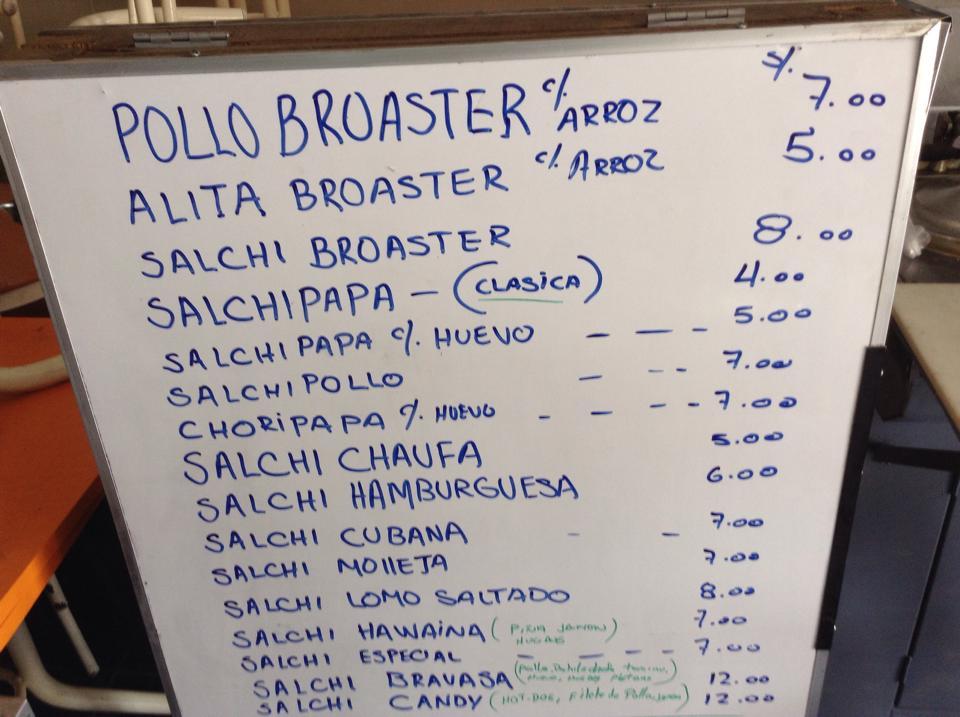 POLLO BROASTER c/. ARROZ S/. 7.00
ALITA BROASTER c/. ARROZ 5.00
SALCHI BROASTER 8.00
SALCHIPAPA - (CLASICA) 4.00
SALCHIPAPA c/. HUEVO - - - 5.00
SALCHIPOLLO - - - 7.00
CHORIPAPA c/. HUEVO - - - - 7.00
SALCHI CHAUFA 5.00
SALCHI HAMBURGUESA 6.00
SALCHI CUBANA - - 7.00
SALCHI MOLLEJA 7.00
SALCHI LOMO SALTADO 8.00
SALCHI HAWAINA (PIÑA JAMON) 7.00
SALCHI ESPECIAL - - - - 7.00
SALCHI BRAVASA 12.00
SALCHI CANDY (HOT-DOG, Filete de Pollo, Jamon) 12.00